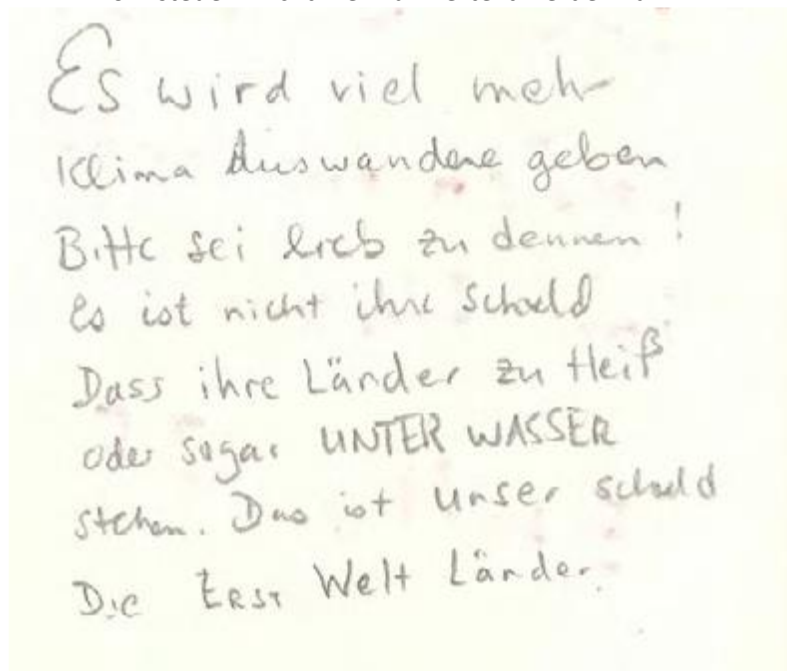 Es wird viel mehr
Klima Auswandere geben
Bitte sei lieb zu dennen!
es ist nicht ihre Schuld
Dass ihre Länder zu Heiß
oder sogar UNTER WASSER
stehen. Das ist unser schuld
Die ERST Welt Länder.